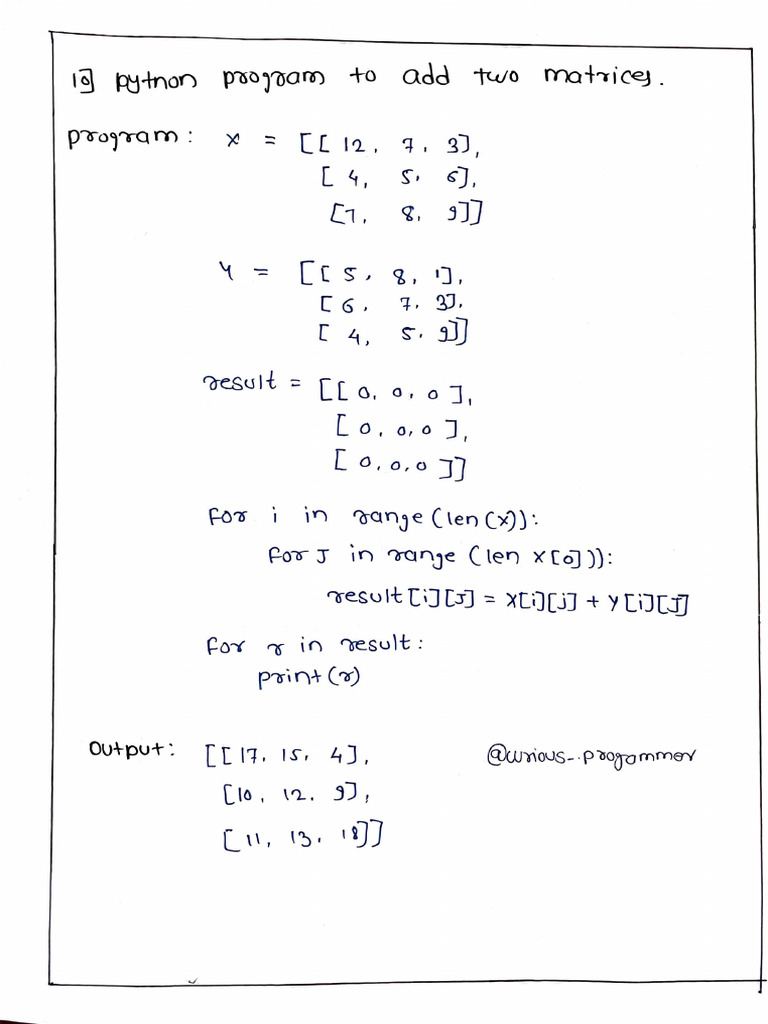 10] python program to add two matrices.
program: x = [[ 12, 7, 3],
[ 4, 5, 6],
[7, 8, 9]]
Y = [[ 5, 8, 1],
[ 6, 7, 3],
[ 4, 5, 9]]
result = [[ 0, 0, 0 ],
[ 0, 0, 0 ],
[ 0, 0, 0 ]]
for i in range (len (x)):
for J in range (len x[0])):
result [i][J] = X[i][j] + Y[i][J]
for r in result :
print (r)
Output: [[ 17, 15, 4],
@curious_.progammer
[10, 12, 9],
[ 11, 13, 18]]